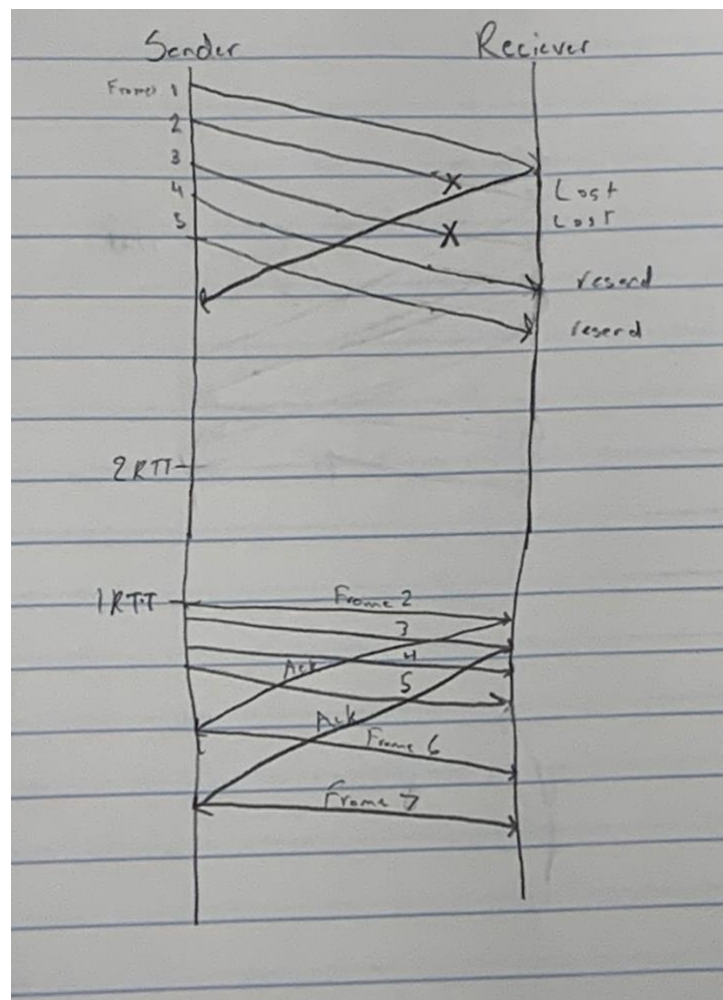 Sender Reciever
Frames 1
2
3
4
5
X
Lost
X
Lost
resend
resend
2RTT
1RTT
Frame 2
3
4
Ack
5
Ack
Frame 6
Frame 7